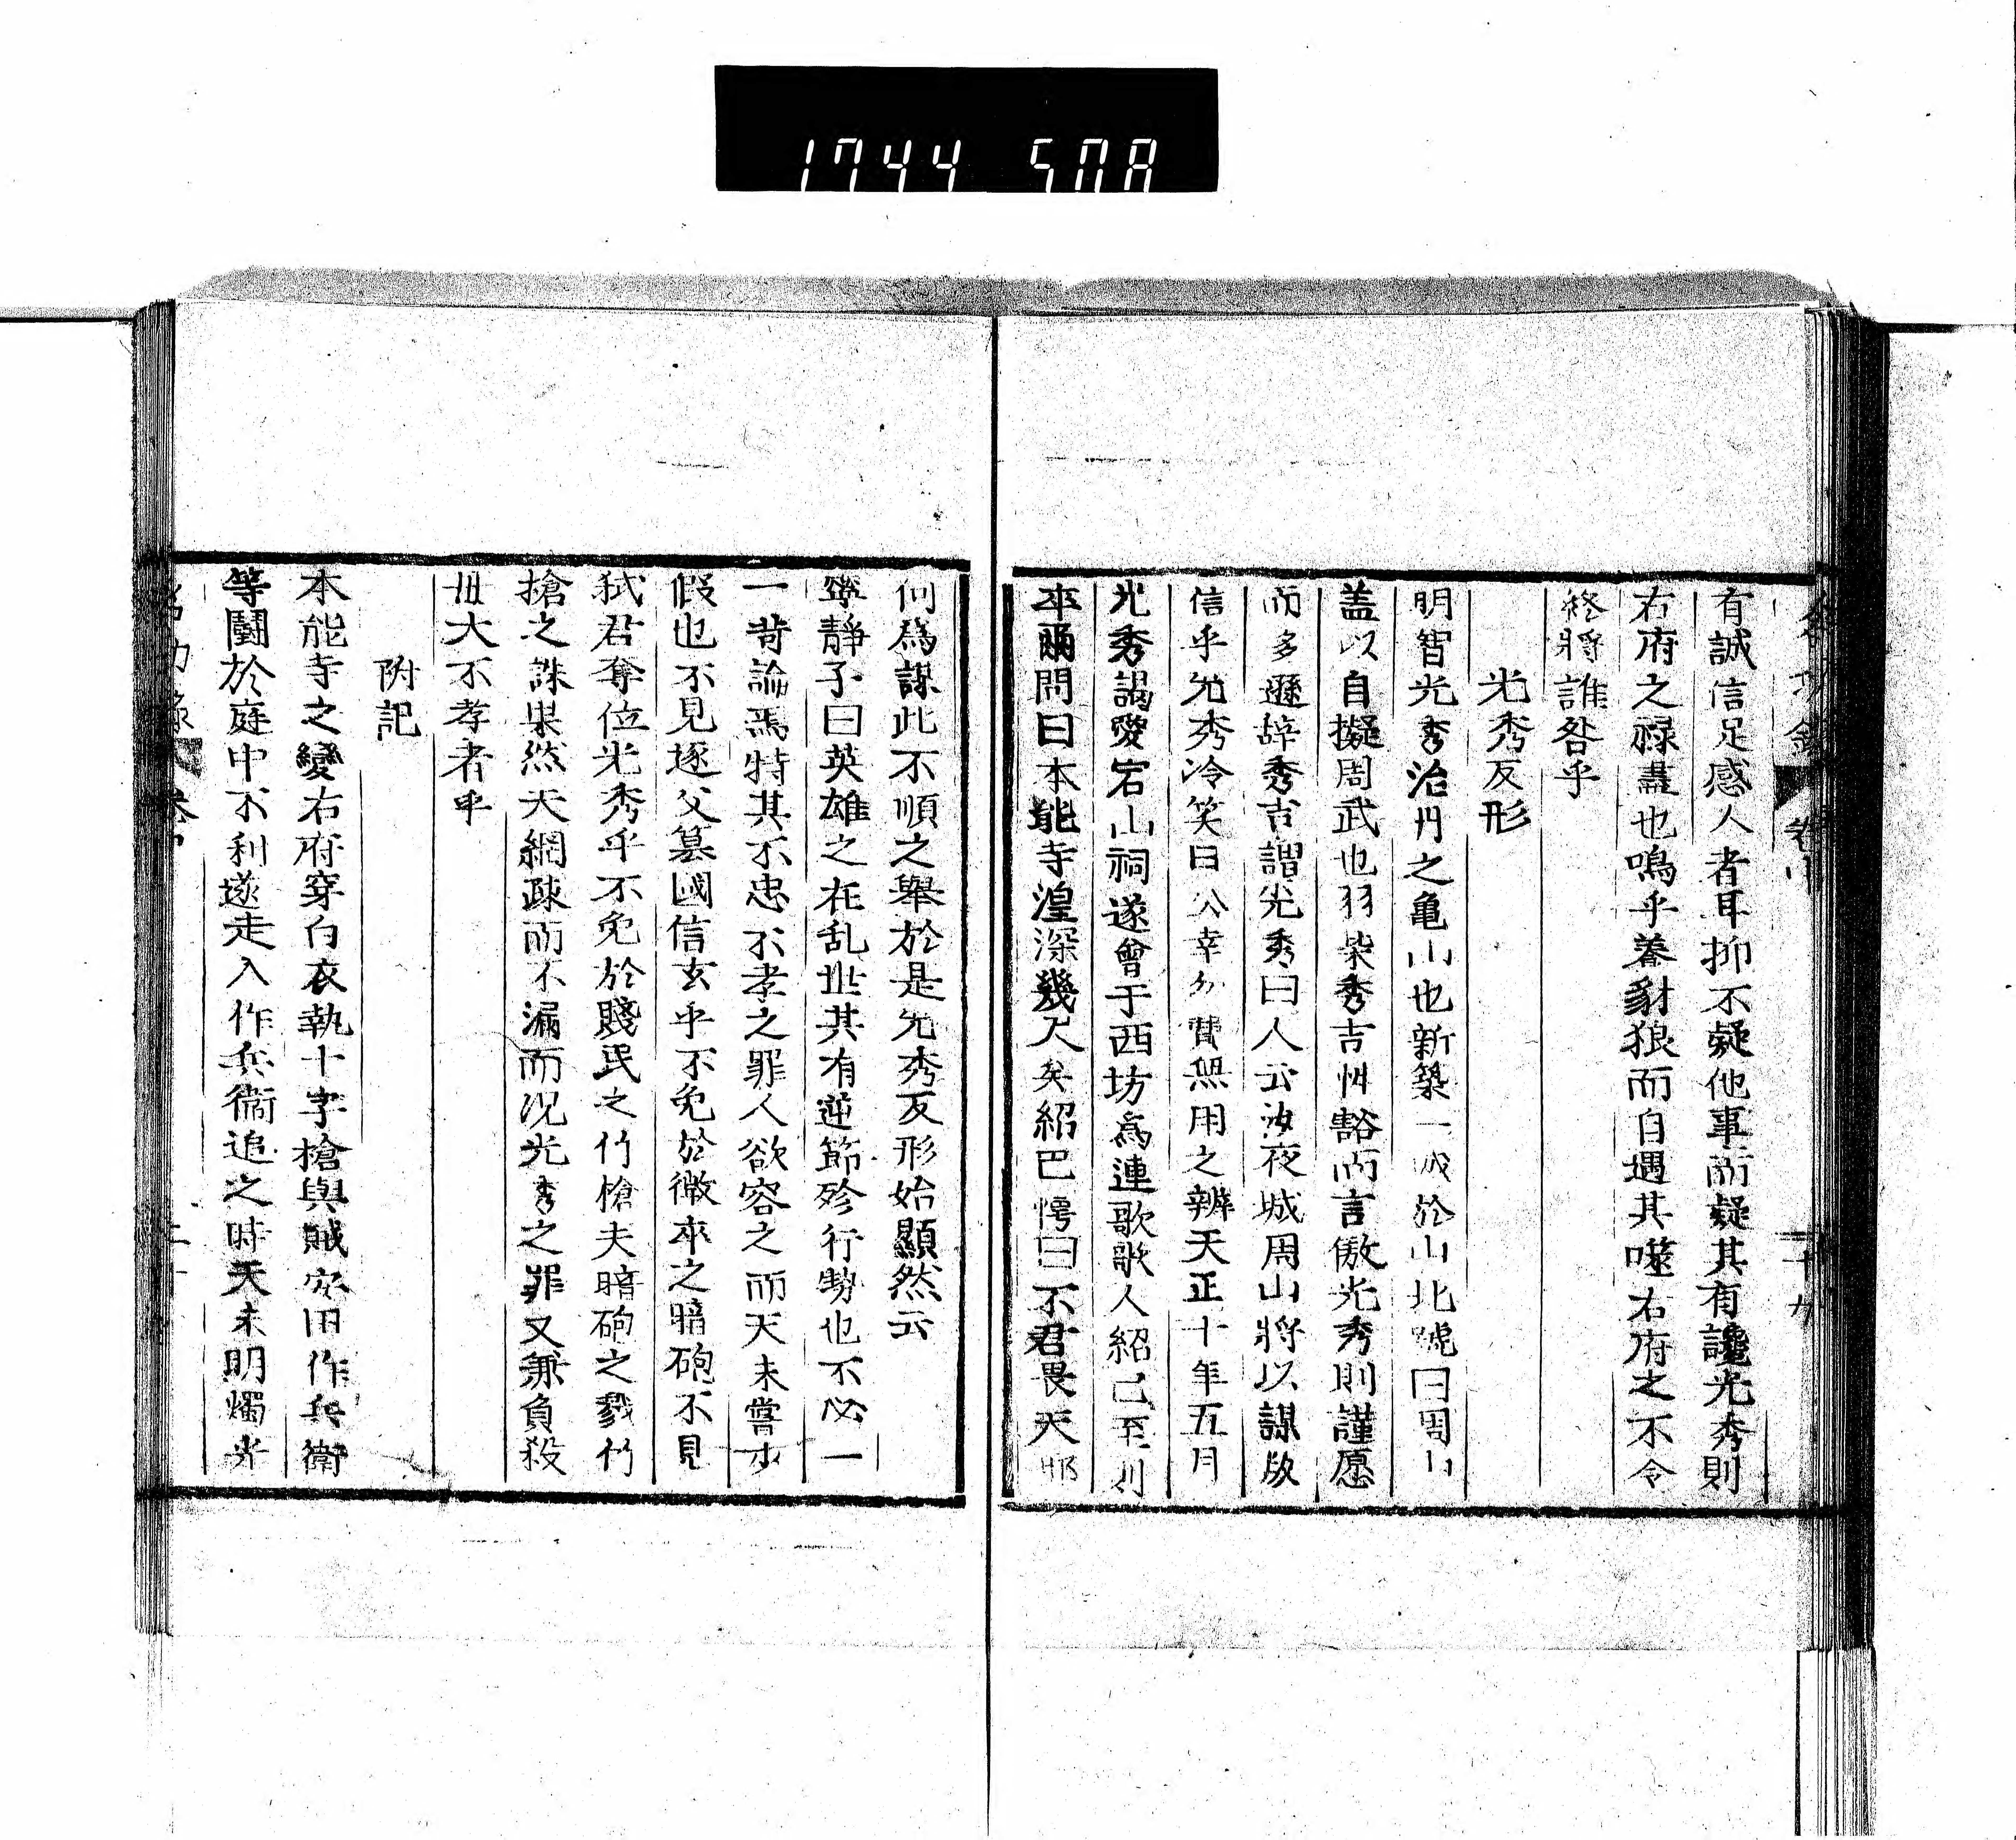 1744 508
有誠信足感人者耳抑不疑他事而疑其有讒光秀則
右府之祿盡也嗚乎養豺狼而自遇其噬右府之不令
終將誰咎乎
光秀反形
明智光秀治丹之亀山也新築一城於山北號曰周山
盖以自擬周武也羽柴秀吉忰豁而言傲光秀則謹愿
而多遜辞秀吉謂光秀曰人云汝夜城周山將以謀
信乎光秀冷笑曰公幸勿費無用之辨天正十年五月
光秀謁愛宕山祠遂會于西坊為連歌歌人紹巴至
卒爾問曰本能寺湟深幾尺矣紹巴愕曰不君畏天邪
何為謀此不順之舉於是光秀反形始顯然云
寧靜子曰英雄之在乱世其有逆節殄行勢也不必一
一苛論焉特其不忠不孝之罪人欲容之而天未嘗少
假也不見逐父篡國信玄乎不免於微卒之暗砲不見
弑君奪位光秀乎不免於賤民之竹槍夫暗砲之戮竹
搶之誅果然天網疎而不漏而况光秀之罪又兼負殺
毌大不孝者乎
附記
本能寺之變右府穿白衣執十字槍與賊安田作兵衛
等鬪於庭中不利遂走入作兵衛追之時天未明燭光